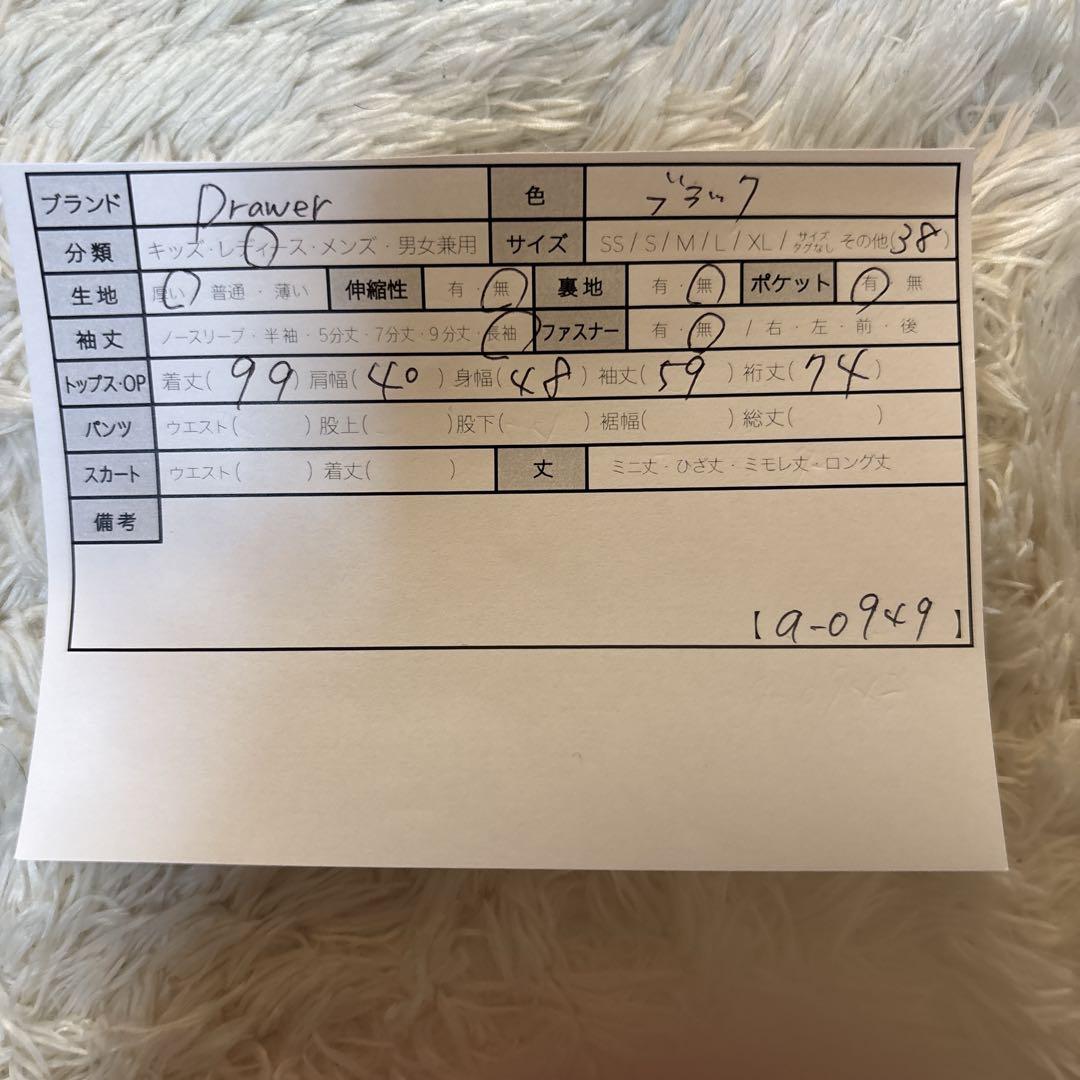 ブランド Drawer 色 ブラック
分類 キッズ・レディース・メンズ・男女兼用 サイズ SS / S / M / L / XL / サイズタグなし その他(38)
生地 厚い・普通・薄い 伸縮性 有・無 裏地 有・無 ポケット 有・無
袖丈 ノースリーブ・半袖・5分丈・7分丈・9分丈・長袖 ファスナー 有・無 / 右・左・前・後
トップス・OP 着丈(99) 肩幅(40) 身幅(48) 袖丈(59) 裄丈(74)
パンツ ウエスト( ) 股上( ) 股下( ) 裾幅( ) 総丈( )
スカート ウエスト( ) 着丈( ) 丈 ミニ丈・ひざ丈・ミモレ丈・ロング丈
備考
【a-0949】